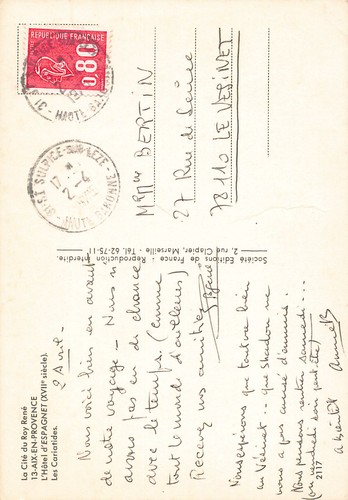 La Cité du Roy René
13-AIX-EN-PROVENCE
L'Hôtel d'ESPAGNET (XVIIe siècle).
Les Cariatides.
2 Avril.
Nous voici bien en avant
de notre voyage - Nous n'
avons pas eu de chance
avec le temps. (comme
tout le monde d'ailleurs)
Recevez nos amitiés
Nous espérons que tout va bien
au Vésinet - que
vous a pas d'ennuis.
Nous pensons rentrer samedi...
(ou vendredi soir peut être)
A bientôt Annie B
2117
Société Éditions de France - Reproduction Interdite.
2, rue Clapier, Marseille - Tél. 62-75-11
REPUBLIQUE FRANÇAISE
0,80
HAUTE GARONNE
ST SULPICE-SUR-LEZE
17 H
2-4
HAUTE GARONNE
Mr Mme BERTIN
27 Rue de Seine
78110 LE VESINET